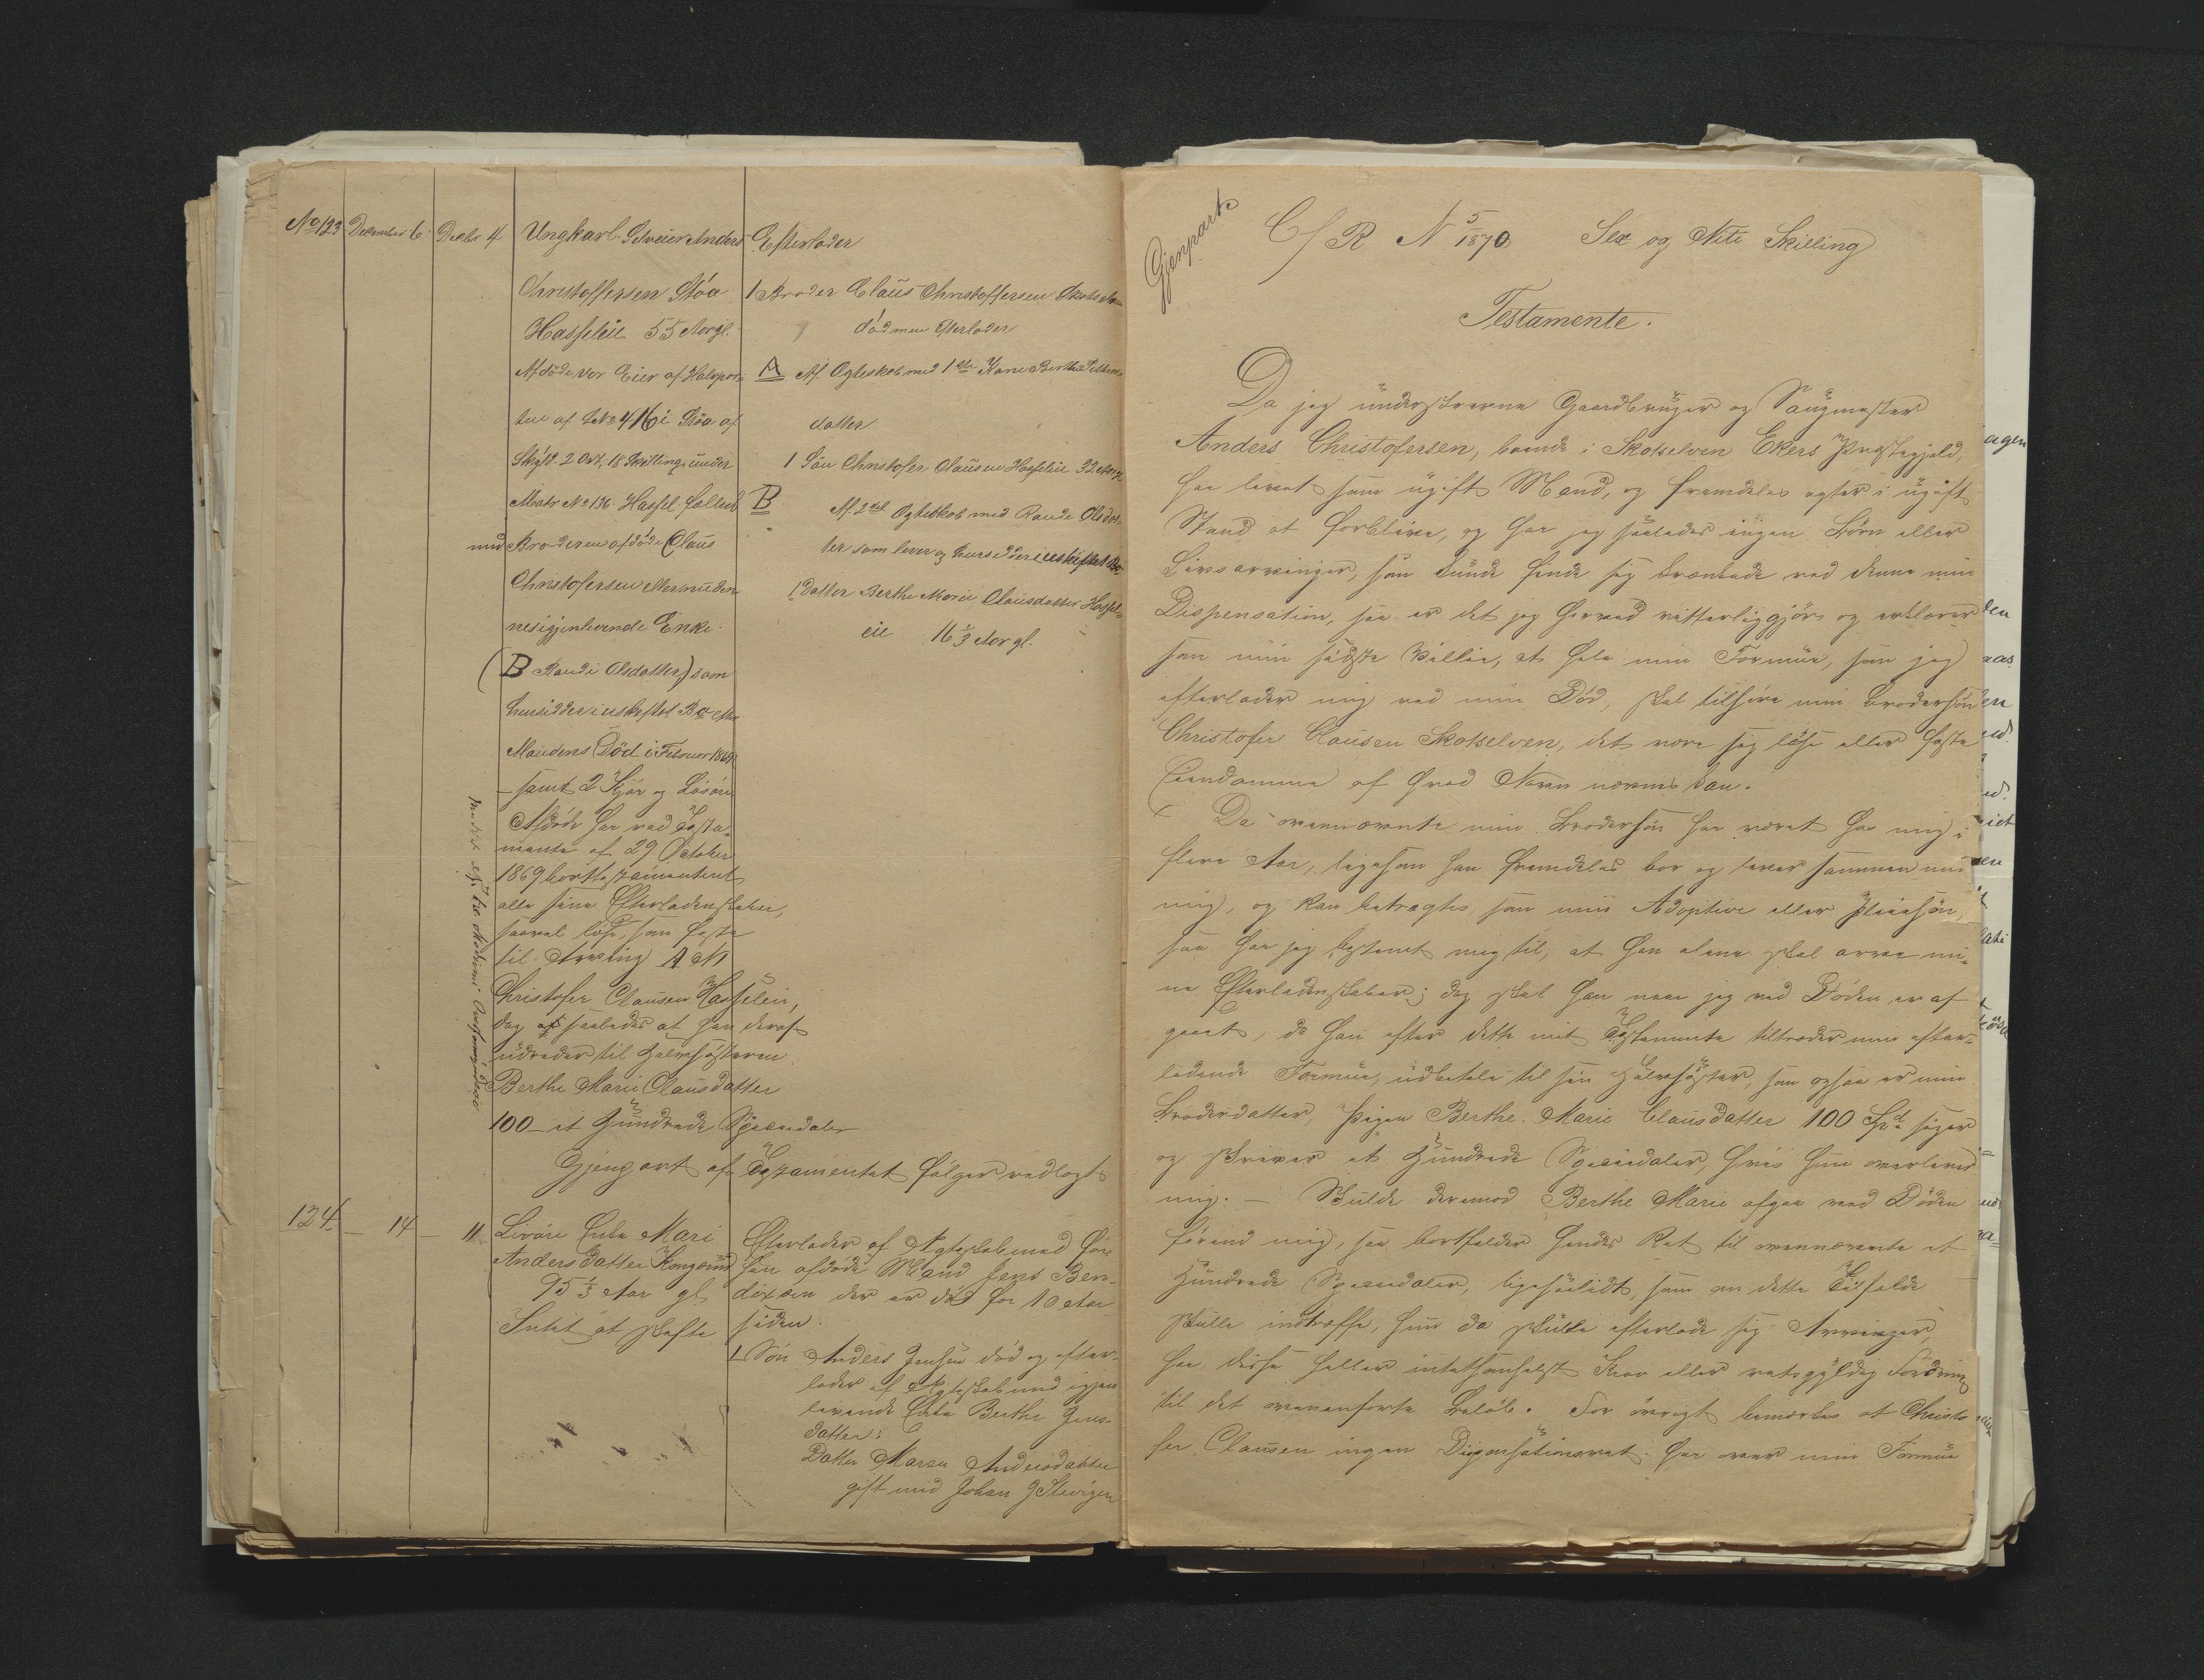 No 123 December 6 Decbr 4 Ungkarl Selveier Anders
Christoffersen Stöa
Hasseleie 55 Aar gl.
Afdöde var Eier af Halvpar-
ten af LNo 416 i Stöa af
Skyld 2 Ort, 18 Skilling under
Matr No 136 Hassel fælles
med Broderen afdöde Claus
Christofersen eller nu den-
nes igjenlevende Enke
(B Randi Olsdatter) som
hensidder i uskiftet Bo efter
Mandens Död i Februar 1869
– samt 2 Kjör og Lösöre
Afdöde har ved Testa-
mente af 29 October
1869 borttestamenteret
alle sine Efterladenskaber,
saavel löst som faste
til Arving A No 1
Christofer Clausen Hasseleie,
dog saaledes at han deraf
udreder til Halvsösteren
Berthe Marie Clausdatter
100 – et Hundrede Speciedaler
Gjenpart af Testamentet fölger vedlagt
Efterlader
1 Broder Claus Christoffersen Skotselven
död men efterlader
A Af Ægteskab med 1ste Kone Berthe
datter
1 Sön Christofer Clausen Hasseleie 32 Aar gl
B Af 2det Ægteskab med Randi Olsdat-
ter som lever og hensidder i uskiftet Bo
1 Datter Berthe Marie Clausdatter Hassel-
eie 16 1/3 Aar gl.
124 – 14 – 11 Enke Mari
Anders Datter Kongsrud
95 1/3 Aar gl
Intet at skifte
Efterlader af Ægteskab med för
hen afdöde Mand Jens Ben-
dixsen der er död for 10 Aar
siden.
1 Sön Anders Jensen död og efter-
lader af Ægteskab med igjen
levende Enke Berthe Jens-
datter:
Datter Maren Andersdatter
gift med Johan
Gjenpart
C/R N 5/1870 Sex og Niti Skilling
Testamente.
Da jeg underskrevne Gaardbruger og Saugmester
Anders Christofersen, boende i Skotselven Ekers Præstegjeld,
har levet som ugift Mand, og fremdeles agter i ugift
Stand at forblive, og har jeg saaledes ingen Börn eller
Livsarvinger, som kunde finde sig krænkede ved denne min
Dispensation, saa er det jeg herved vitterliggjör og erklærer
som min sidste Villie, at hele min Formue, som jeg
efterlader mig ved min Död, skal tilhöre min Brodersön
Christofer Clausen Skotselven, det være sig löse eller faste
Eiendomme af hvad Navn nævnes kan.
Da ovennævnte min Brodersön har været hos mig i
flere Aar, ligesom han fremdeles bor og lever sammen med
mig, og kan betragtes som min Adoptiv eller Pleiesön,
saa har jeg bestemt mig til, at han alene skal arve mi-
ne Efterladenskaber; dog skal han naar jeg ved Döden er af-
gaaet, da han efter dette mit Testamente tiltræder min efter-
ladende Formue, udbetale til sin Halvsöster, som ogsaa er min
Broderdatter, Pigen Berthe Marie Clausdatter 100 Spd siger
og skriver et Hundrede Speciedaler, hvis hun overlever
mig. – Skulde derimod Berthe Marie afgaa ved Döden
förend mig, saa bortfalder hendes Ret til ovennævnte et
Hundrede Speciedaler, ligesaalidt, som om dette Tilfælde
skulle indtræffe, hun da skulde efterlade sig Arvinger,
har disse heller intetsomhelst Krav eller retsgyldig Fordring
til det ovenanförte Belöb. For övrigt bemærkes at Christo
fer Clausen ingen Dispensationsret har over min Formue